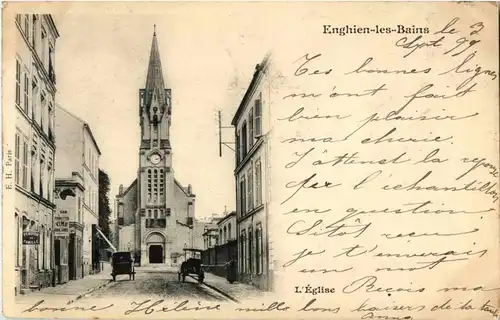 Enghien-les-Bains
le 3
Sept 99
Tes bonnes ligne
m'ont fait
bien plaisir
ma cherie.
J'attend la
l'échantillon
en question.
Sitôt reçu
je t'enverais
un mot
L'Église
Recois ma
bonne Hélène mille bons baisers de ta
E. H. Paris